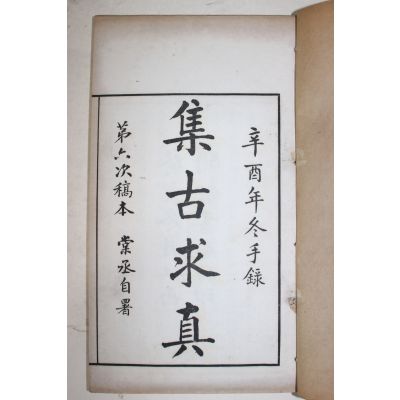 辛酉年冬手録
集古求真
第六次稿本 棠丞自署